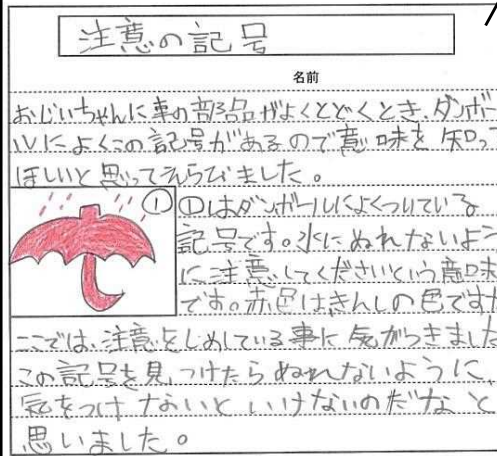 注意の記号
名前
おじいちゃんに車の部品がよくとどくとき、ダンボー
ルによくこの記号があるので意味を知って
ほしいと思ってえらびました。
① ①はダンボールによくついている
記号です。水にぬれないよう
に注意してくださいという意味
です。赤色はきんしの色ですが
ここでは、注意をしめしている事に気がつきました
この記号を見つけたらぬれないように、
気をつけないといけないのだなと
思いました。